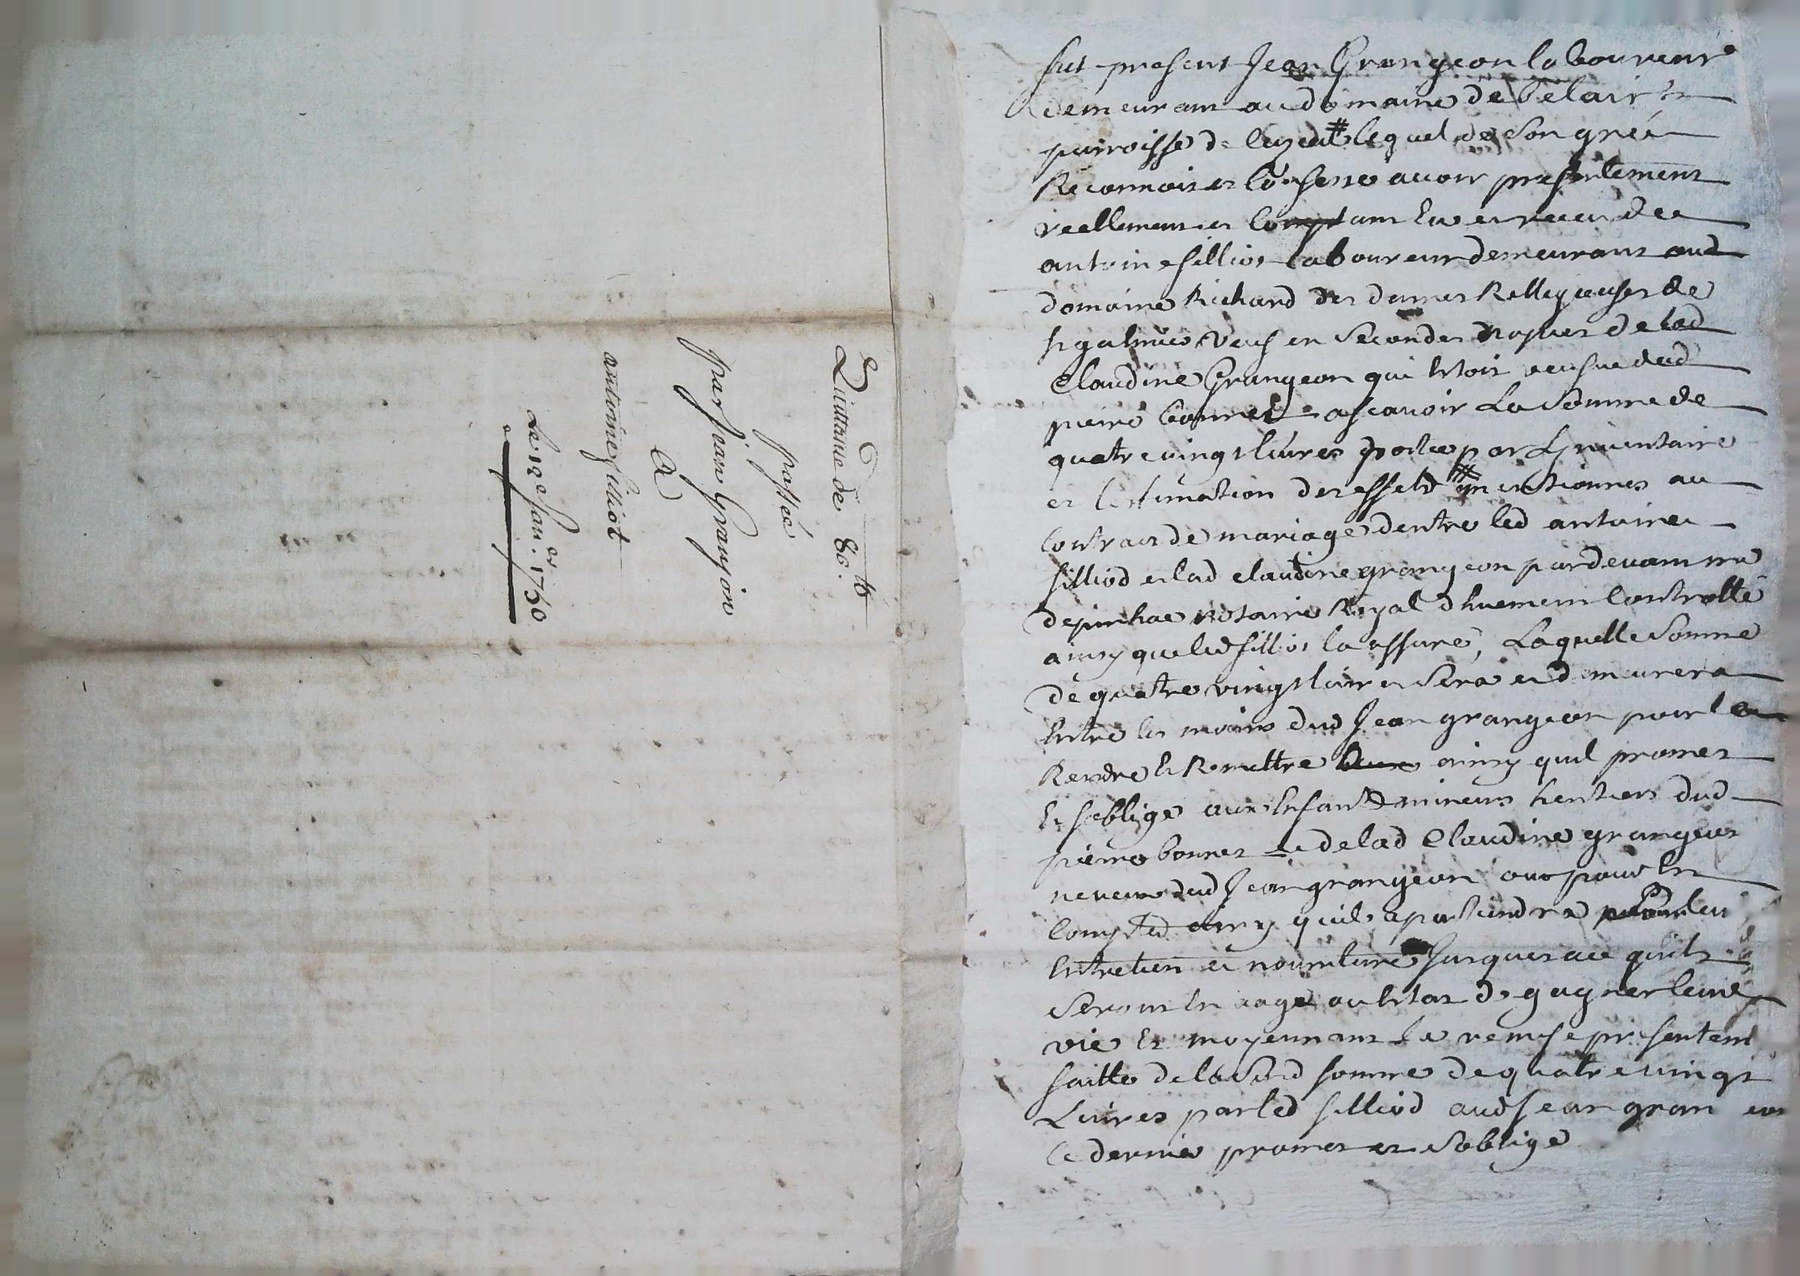 Quittance de 80 lb
passée
par jean Granjon
a
antoine filliot
Le 12e Janer 1750
fut present Jean Grangeon laboureur
demeurant au domaine de belair
parroisse de lequel de son gréé
Reconnois et confesse avoir presentement
reellement et comptant eu et receu de
antoine fillios laboureur demeurant aud
domaine Richard des dames Relligieuses de
st galmier veuf en secondes nopces de lad
Claudine Grangeon qui estoit veufve dud
pierre bonnet ascavoir La somme de
quatre vingt livres portée par Linventaire
et lestimation des effets mentionnes au
contract de mariage dentre led antoine
filliod et lad claudine grangeon pardevant me
notaire Royal controllé
ainsy que led fillios la assuré, Laquelle somme
de quatre vingt livres sera et demeurera
Entre les mains dud Jean grangeon pour la
Rendre et Remettre ainsy quil promet
Et soblige aux enfants mineurs heritiers dud
pierre bonnet et de lad Claudine grangeon
neveux dud Jean grangeon ou pour les
ainsy quil apartiendra
Entretien et nourriture jusques a ce quils
seront en aage ou estat de gagner leur
vie Et moyennant la remise presentem
faitte de la susd somme de quatre vingt
Livres par led filliod aud Jean gran eon
ce dernier promet et soblige